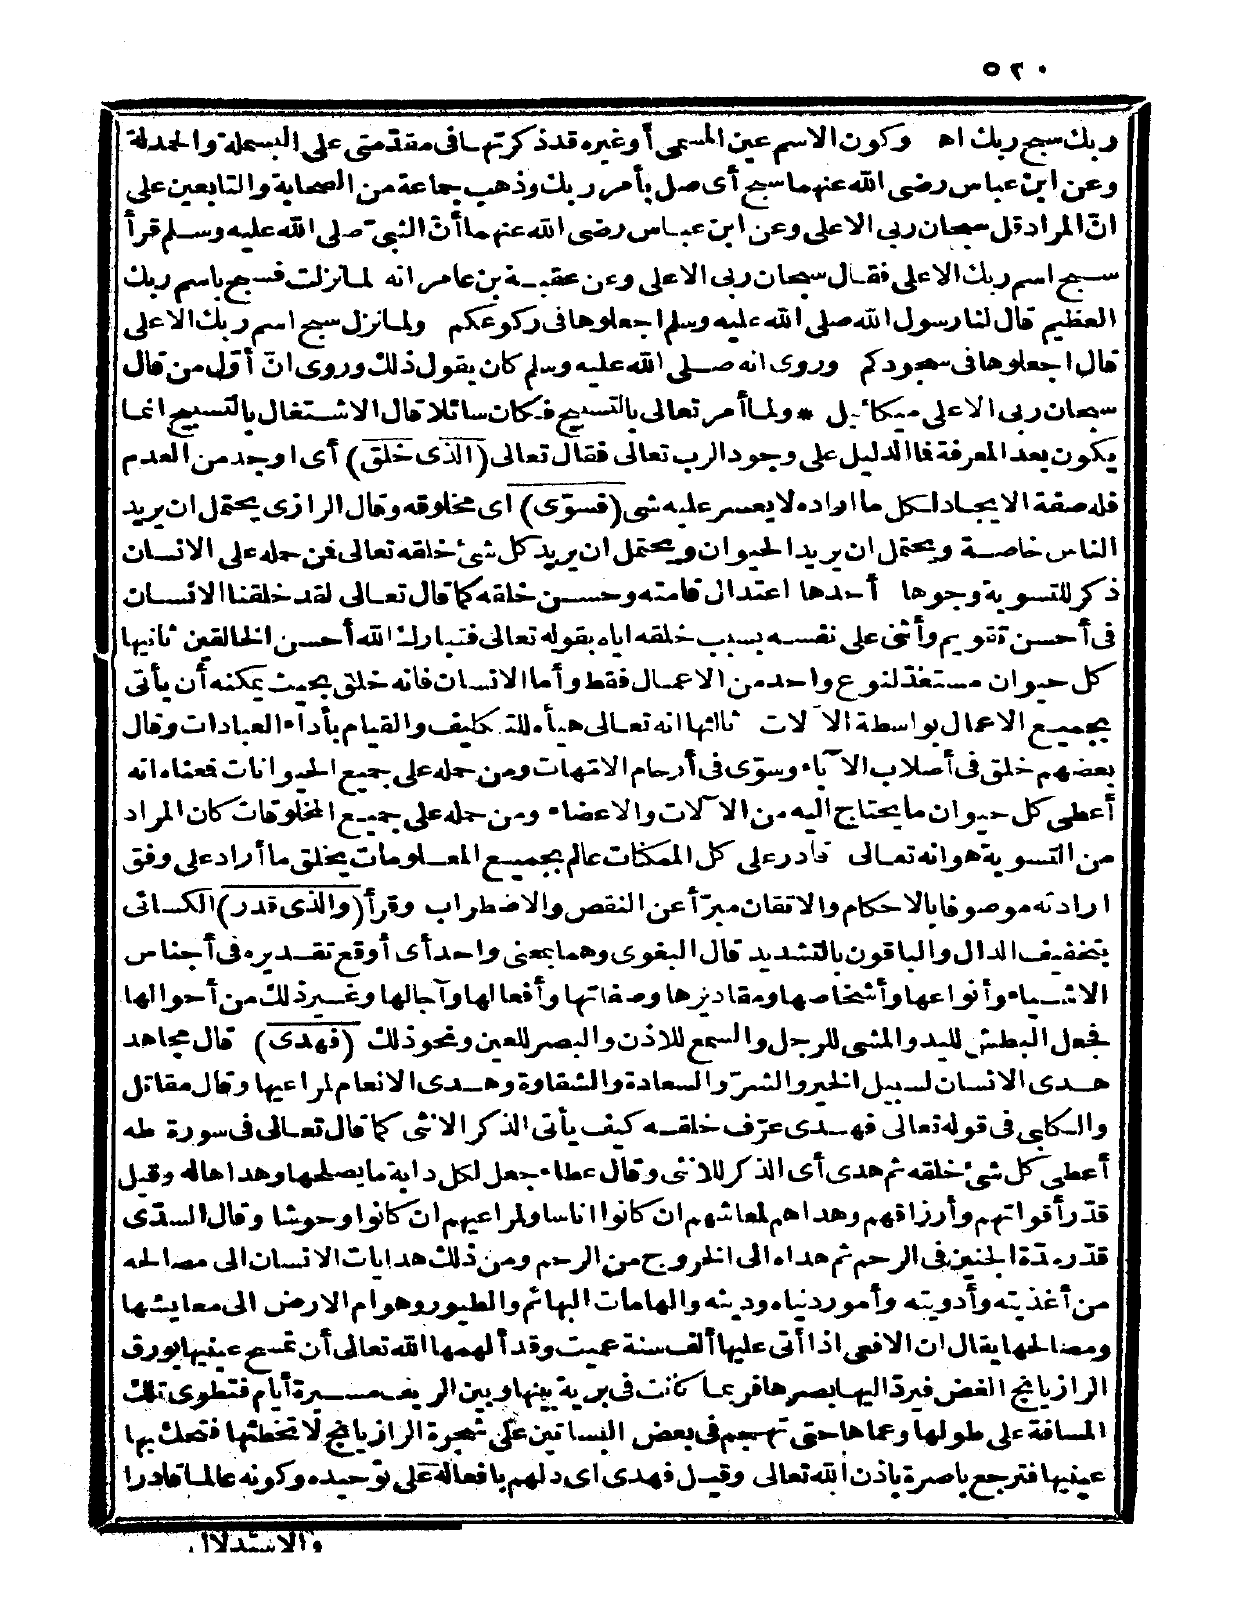 ٥٢٠
ربك سبح ربك اه وكون الاسم عين المسمى أو غيره قد ذكرتها فى مقدّمتى على البسملة والحمدلة
وعن ابن عباس رضى الله عنهما سبح أى صل بأمر ربك وذهب جماعة من الصحابة والتابعين على
انّ المراد قل سبحان ربى الاعلى وعن ابن عباس رضى الله عنهما أنّ النبىّ صلى الله عليه وسلم قرأ
سبح اسم ربك الاعلى فقال سبحان ربى الاعلى وعن عقبة بن عامر انه لما نزلت فسبح باسم ربك
العظيم قال لنا رسول الله صلى الله عليه وسلم اجعلوها فى ركوعكم ولما نزل سبح اسم ربك الاعلى
قال اجعلوها فى سجودكم وروى انه صلى الله عليه وسلم كان يقول ذلك وروى انّ أوّل من قال
سبحان ربى الاعلى ميكائيل * ولما أمر تعالى بالتسبيح فكان سائلا قال الاشتغال بالتسبيح انما
يكون بعد المعرفة فما الدليل على وجود الرب تعالى فقال تعالى (الذى خلق) أى اوجد من العدم
فله صفة الايجاد لكل ما اراده لا يعسر عليه شى (فسوّى) اى مخلوقه وقال الرازى يحتمل ان يريد
الناس خاصة ويحتمل ان يريد الحيوان ويحتمل ان يريد كل شئ خلقه تعالى فمن حمله على الانسان
ذكر للتسوية وجوها أحدها اعتدال قامته وحسن خلقه كما قال تعالى لقد خلقنا الانسان
فى أحسن تقويم وأثنى على نفسه بسبب خلقه اياه بقوله تعالى فتبارك الله أحسن الخالقين ثانيها
كل حيوان مستعدّ لنوع واحد من الاعمال فقط وأما الانسان فانه خلق بحيث يمكنه أن يأتى
بجميع الاعمال بواسطة الآلات ثالثها انه تعالى هيأه للتكليف والقيام بأداء العبادات وقال
بعضهم خلق فى أصلاب الآباء وسوّى فى أرحام الامّهات ومن حمله على جميع الحيوانات فمعناه انه
أعطى كل حيوان ما يحتاج اليه من الآلات والاعضاء ومن حمله على جميع المخلوقات كان المراد
من التسوية هو انه تعالى قادر على كل الممكنات عالم بجميع المعلومات يخلق ما أراد على وفق
ارادته موصوفا بالاحكام والاتقان مبرّأ عن النقص والاضطراب وقرأ (والذى قدر) الكسائى
بتخفيف الدال والباقون بالتشديد قال البغوى وهما بمعنى واحد أى أوقع تقديره فى أجناس
الاشياء وأنواعها وأشخاصها ومقاديرها وصفاتها وأفعالها وآجالها وغير ذلك من أحوالها
فجعل البطش لليد والمشى للرجل والسمع للاذن والبصر للعين ونحو ذلك (فهدى) قال مجاهد
هدى الانسان لسبيل الخير والشرّ والسعادة والشقاوة وهدى الانعام لمراعيها وقال مقاتل
والكلبى فى قوله تعالى فهدى عرّف خلقه كيف يأتى الذكر الانثى كما قال تعالى فى سورة طه
أعطى كل شئ خلقه ثم هدى أى الذكر للانثى وقال عطاء جعل لكل دابة ما يصلحها وهداها له وقيل
قدّر أقواتهم وأرزاقهم وهداهم لمعاشهم ان كانوا اناسا ولمراعيهم ان كانوا وحوشا وقال السدّى
قدّر مدّة الجنين فى الرحم ثم هداه الى الخروج من الرحم ومن ذلك هدايات الانسان الى مصالحه
من أغذيته وأدويته وأمور دنياه ودينه والهامات البهائم والطيور وهوام الارض الى معايشها
ومصالحها يقال ان الافعى اذا أتى عليها ألف سنة عميت وقد ألهمها الله تعالى أن تمسح عينيها بورق
الرازيانج الغض فيردّ اليها بصرها فربما كانت فى برية بينها وبين الريف مسيرة أيام فتطوى تلك
المسافة على طولها وعماها حتى تهجم فى بعض البساتين على شجرة الرازيانج لا تخطئها فتحك بها
عينيها فترجع باصرة باذن الله تعالى وقيل فهدى اى دلهم بافعاله على توحيده وكونه عالما قادرا
والاستدلال